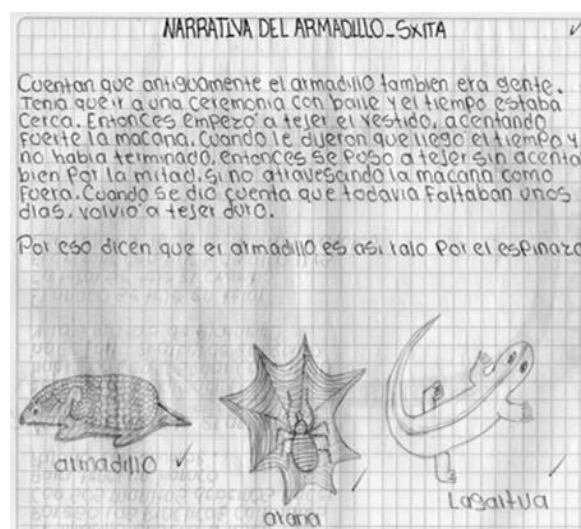 NARRATIVA DEL ARMADILLO_SXITA
Cuentan que antiguamente el armadillo tambien era gente.
Tenia que ir a una ceremonia con baile y el tiempo estaba
Cerca. Entonces empezó a tejer el vestido, acentando
fuerte la macana. Cuando le dijeron que llego el tiempo y
no habia terminado, entonces se puso a tejer sin acenta
bien Por la mitad, si no atravesando la macana como
fuera. Cuando se dio cuenta que todavia faltaban unos
dias, volvio a tejer duro.
Por eso dicen que el armadillo es asi ralo Por el espinazo
armadillo
araña
Lagartija